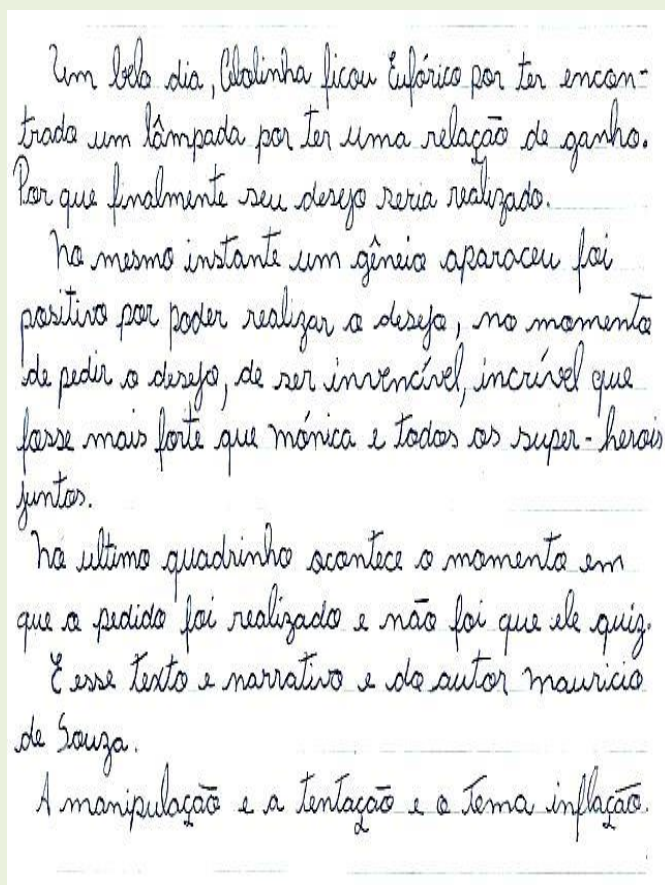 Um belo dia, Cebolinha ficou Eufórico por ter encon-
trado um lâmpada por ter uma relação de ganho.
Por que finalmente seu desejo seria realizado.
No mesmo instante um gêneio aparaceu foi
positivo por poder realizar o desejo, no momento
de pedir o desejo, de ser invencível, incrível que
fosse mais forte que mônica e todos os super-herois
juntos.
No ultimo quadrinho acontece o momento em
que o pedido foi realizado e não foi que ele quiz.
E esse texto e narrativo e do autor mauricio
de Souza.
A manipulação e a tentação e o Tema inflação.